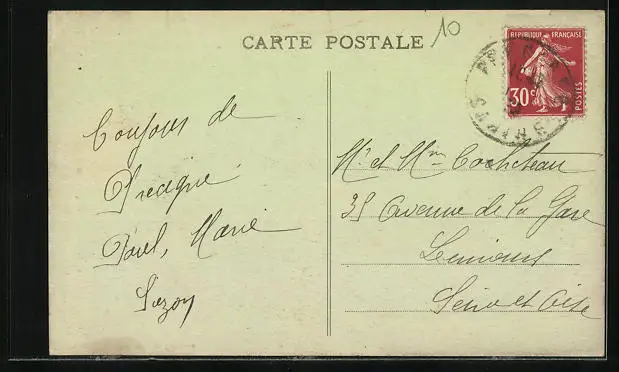 CARTE POSTALE
10
REPUBLIQUE FRANÇAISE
30c
POSTES
Bonjour de
Paul, Marie
Suzon
Mr et Mme Cocheteau
35 Avenue de la Gare
Seine et Oise